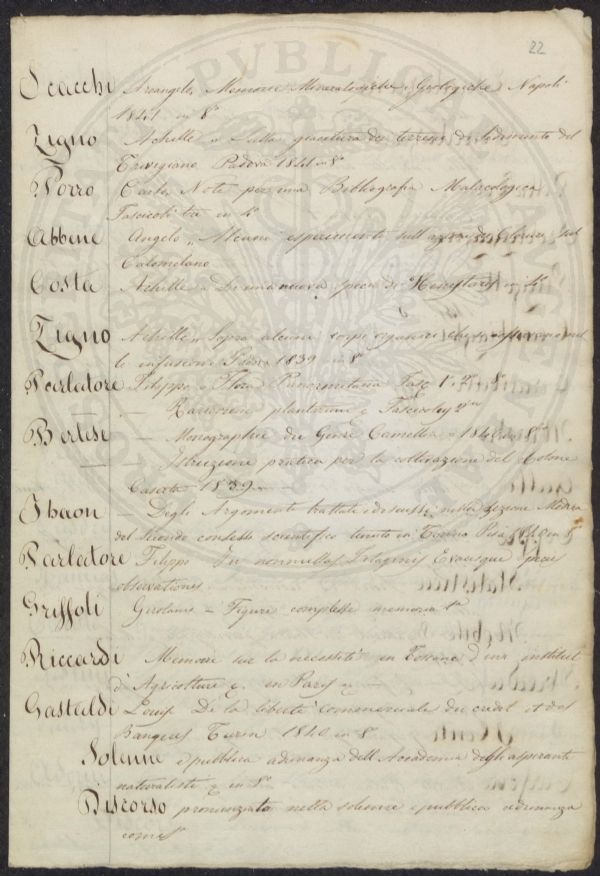 22
Scacchi Arcangelo, Memorie Mineralogiche e Geologiche Napoli
1841 in 8°
Zigno Achille „ Sulla giacitura dei terreni di Sedimento del
Trivigiano Padova 1841 in 8°
Porro Carlo Note per una Bibliografia Malacologica
Fascicoli tre in 4°
Abbene Angelo „ Alcuni esperimenti sull'azione del sul
Calomelano
Costa Achille „ Di una nuova specie di in 4°
Zigno Achille „ Sopra alcuni corpi organici che si osservano nel
le infusioni Padova 1839 in 8°
Parlatore Filippo „ Flora Panormitana Fasc. 1° 2°
— Rariorum plantarum Fascicoli 2
Berlesi — Monographie du Genre Camellia 1840 in 8°
— Istruzione pratica per la coltivazione del Cotone
Caserta 1839
— Degli Argomenti trattati e discussi nella sezione Medica
del secondo congresso scientifico tenuto in Torino Pisa 1840 in 8°
Parlatore Filippo In nonnullas Evacisque species
observationes
Griffoli Girolamo = Figure complesse memoria 1ª
Riccardi Memoire sur la necessité en Toscane d'un institut
d'Agriculture en Paris
Gastaldi Louis De la liberté commerciale du credit et des
Banques Turin 1840 in 8°
Solenne e pubblica adunanza dell'Accademia degli aspiranti
naturalisti in 8°
Discorso pronunziato nella solenne e pubblica adunanza